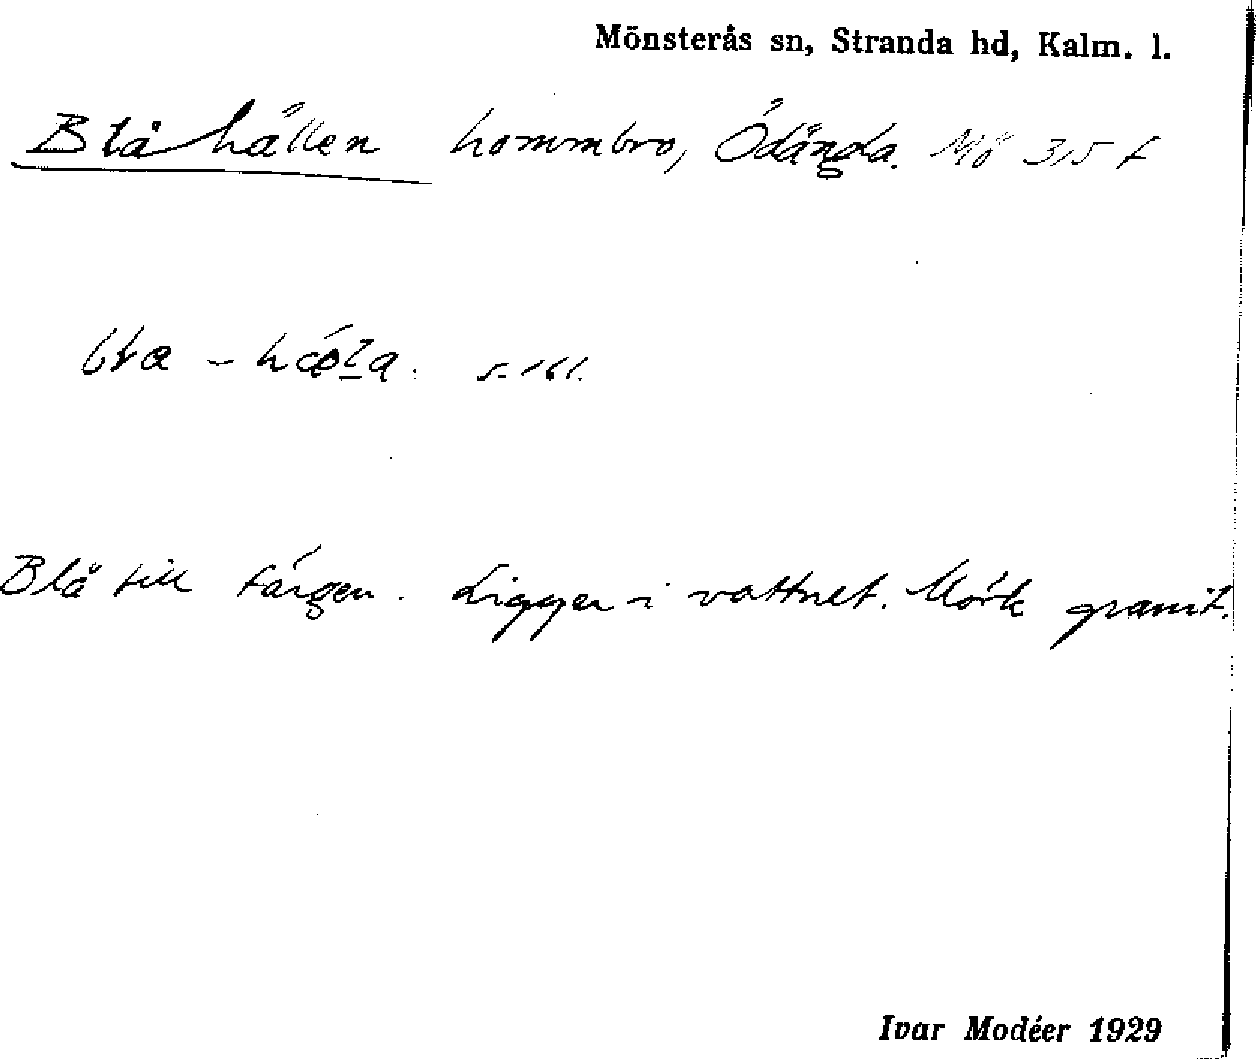 Mönsterås sn, Stranda hd, Kalm. l.
Blåhällen hommbro, Ödängla. Mö 3,5 f
s. 161.
Blå till färgen. Ligger i vattnet. Mörk granit.
Ivar Modéer 1929